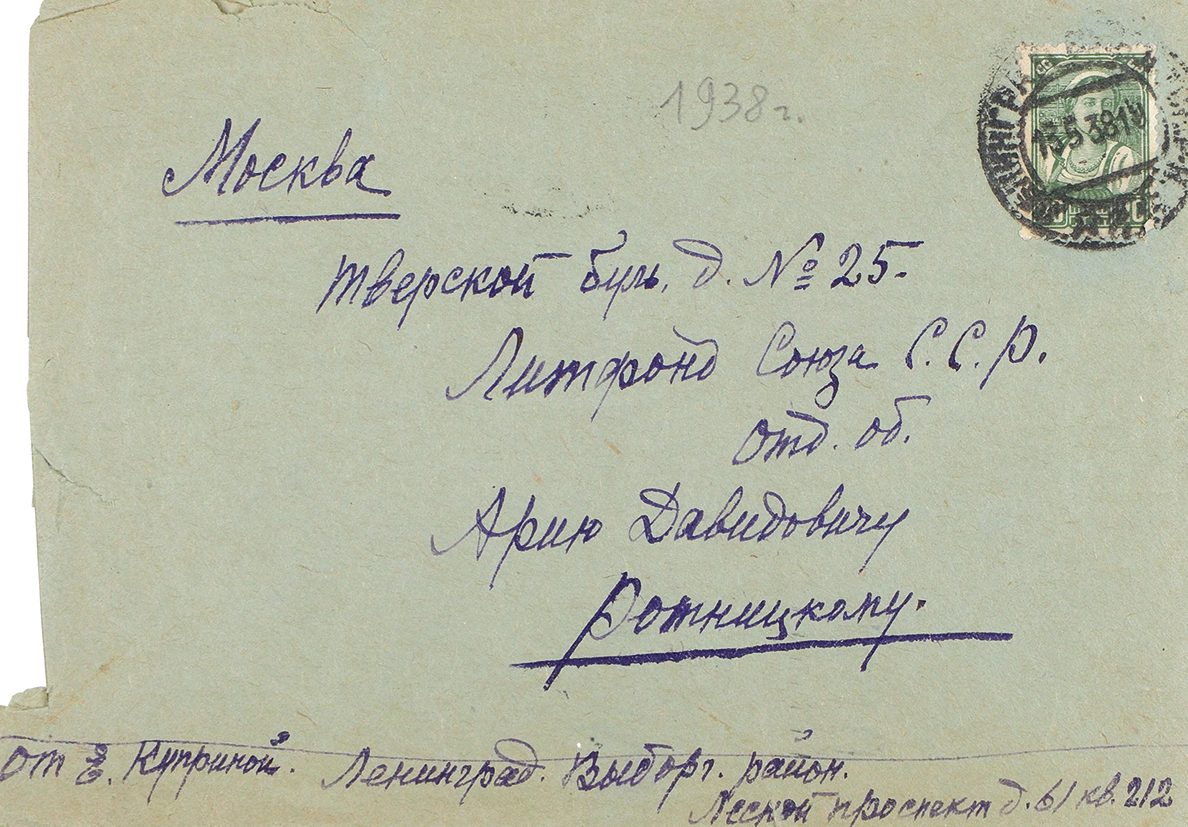 1938 г.
Москва
Тверской буль. д. № 25.
Литфонд Союза С.С.Р.
отд. об.
Арию Давидовичу
Ротницкому.
от Е. Куприной. Ленинград. Выборг. район.
Лесной проспект д. 61 кв. 212
13 5 38